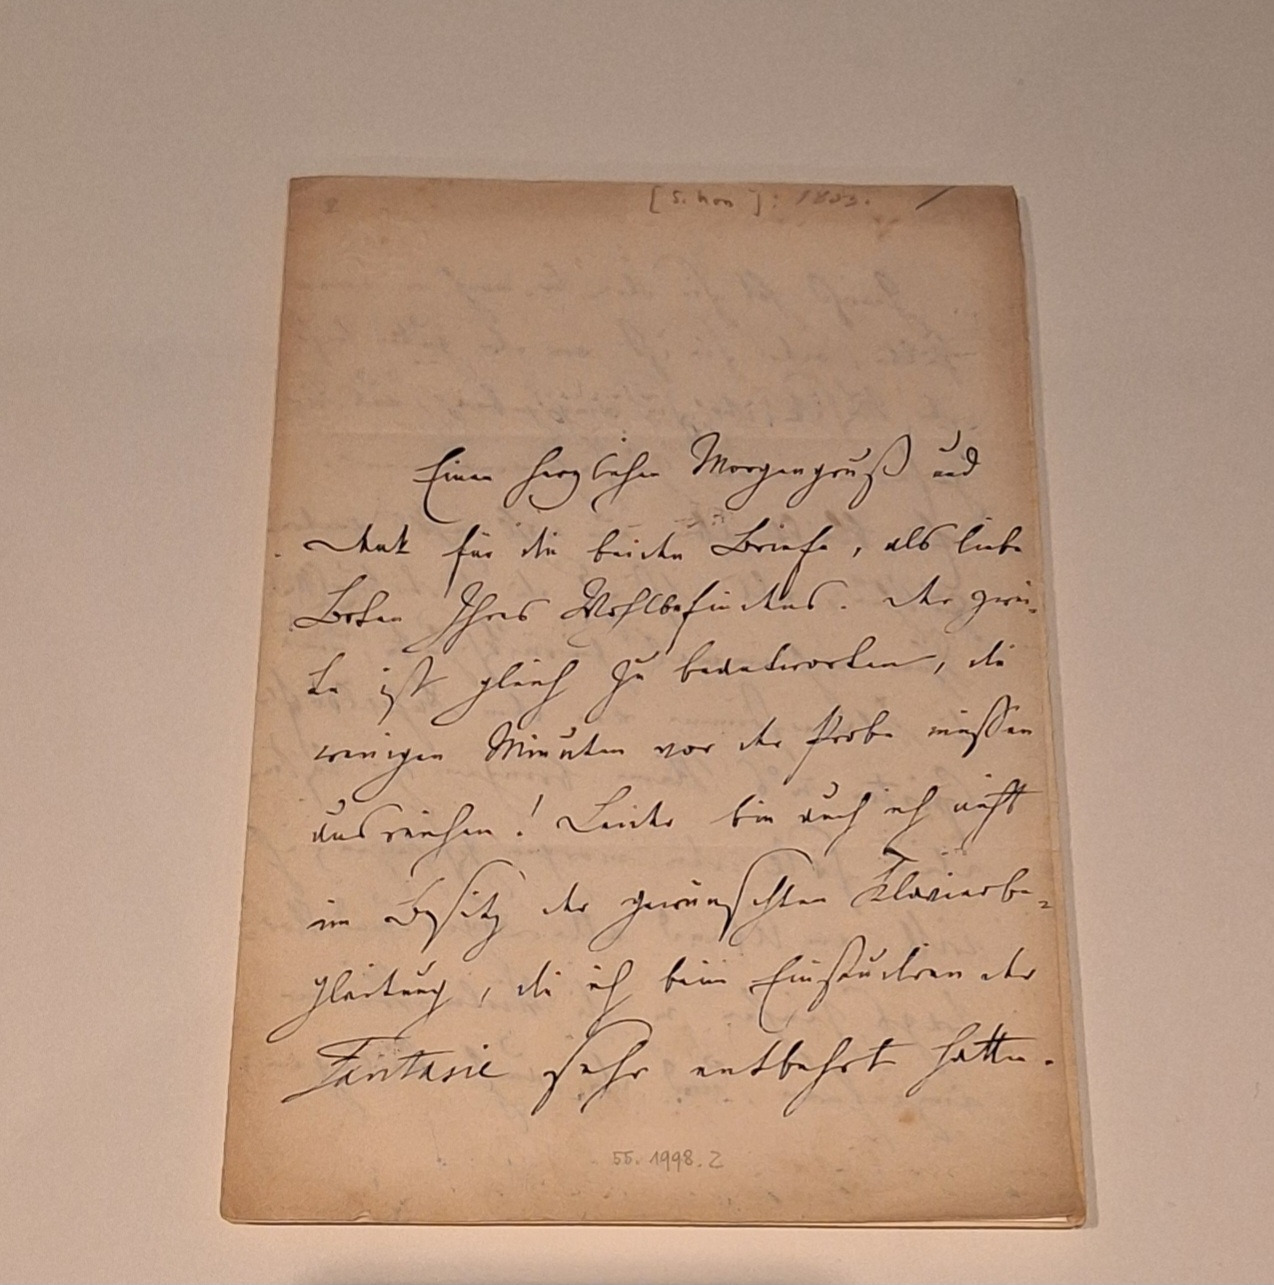 [5. Nov]: 1853.
Einen herzlichen Morgengruß und
Dank für die beiden Briefe, als liebe
Boten Ihres Wohlbefindens. Der zwei-
te ist gleich zu beantworten, die
wenigen Minuten vor der Probe müssen
ausreichen! Leider bin auch ich nicht
im Besitz der gewünschten Klavierbe-
gleitung, die ich beim Einstudiren der
Fantasie sehr entbehrt hatte.
55.1998.2